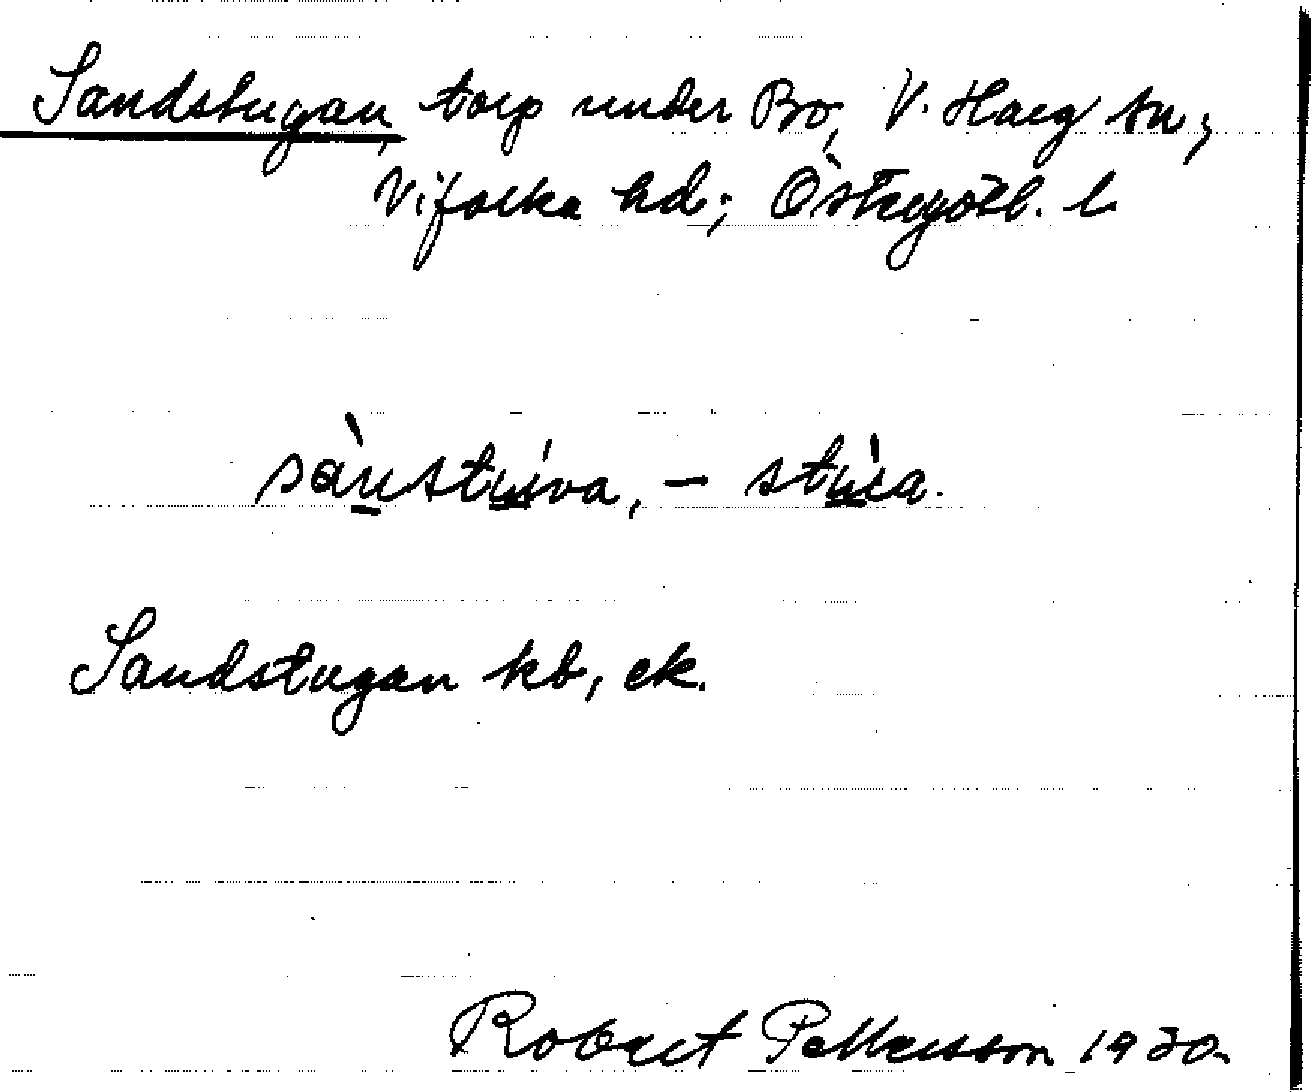 Sandstugan, torp under Bo, V. Harg sn;
Vifolka hd; Östergötl. l
sànstúva, - stúa.
Sandstugan kb, ek.
Robert Pettersson 1930.